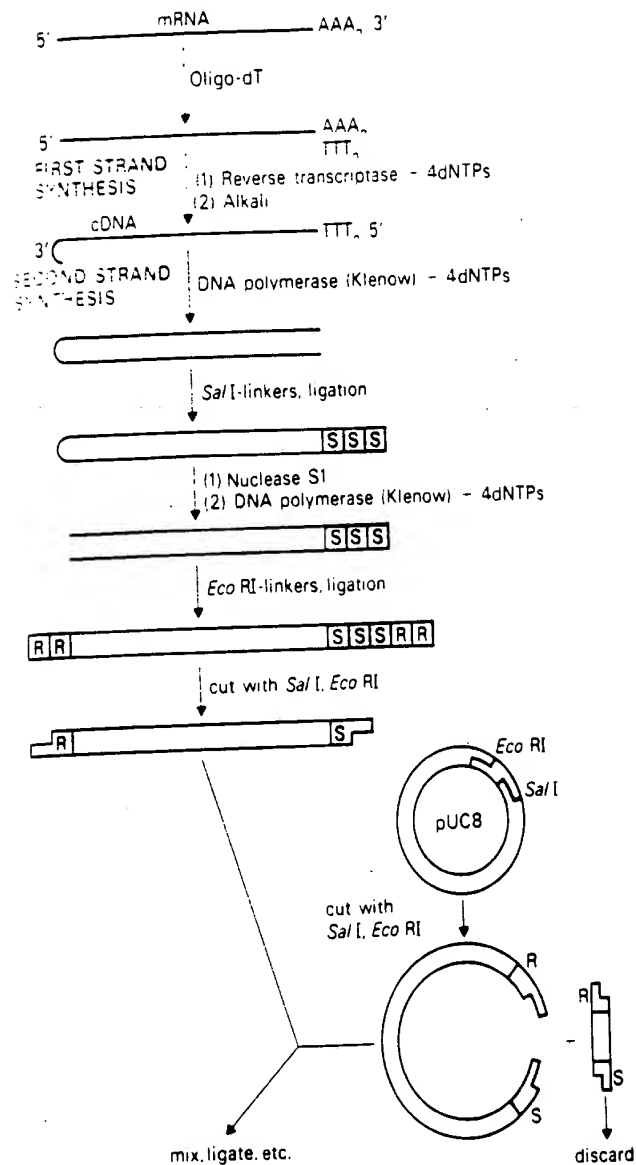 mRNA
5' AAAn 3'
Oligo-dT
5' AAAn
TTTn
FIRST STRAND
SYNTHESIS
(1) Reverse transcriptase – 4dNTPs
(2) Alkali
cDNA
3' TTTn 5'
SECOND STRAND
SYNTHESIS
DNA polymerase (Klenow) – 4dNTPs
Sal I-linkers, ligation
S S S
(1) Nuclease S1
(2) DNA polymerase (Klenow) – 4dNTPs
S S S
Eco RI-linkers, ligation
R R S S S R R
cut with Sal I, Eco RI
R S
Eco RI
Sal I
pUC8
cut with
Sal I, Eco RI
R
R
–
S
S
mix, ligate, etc.
discard